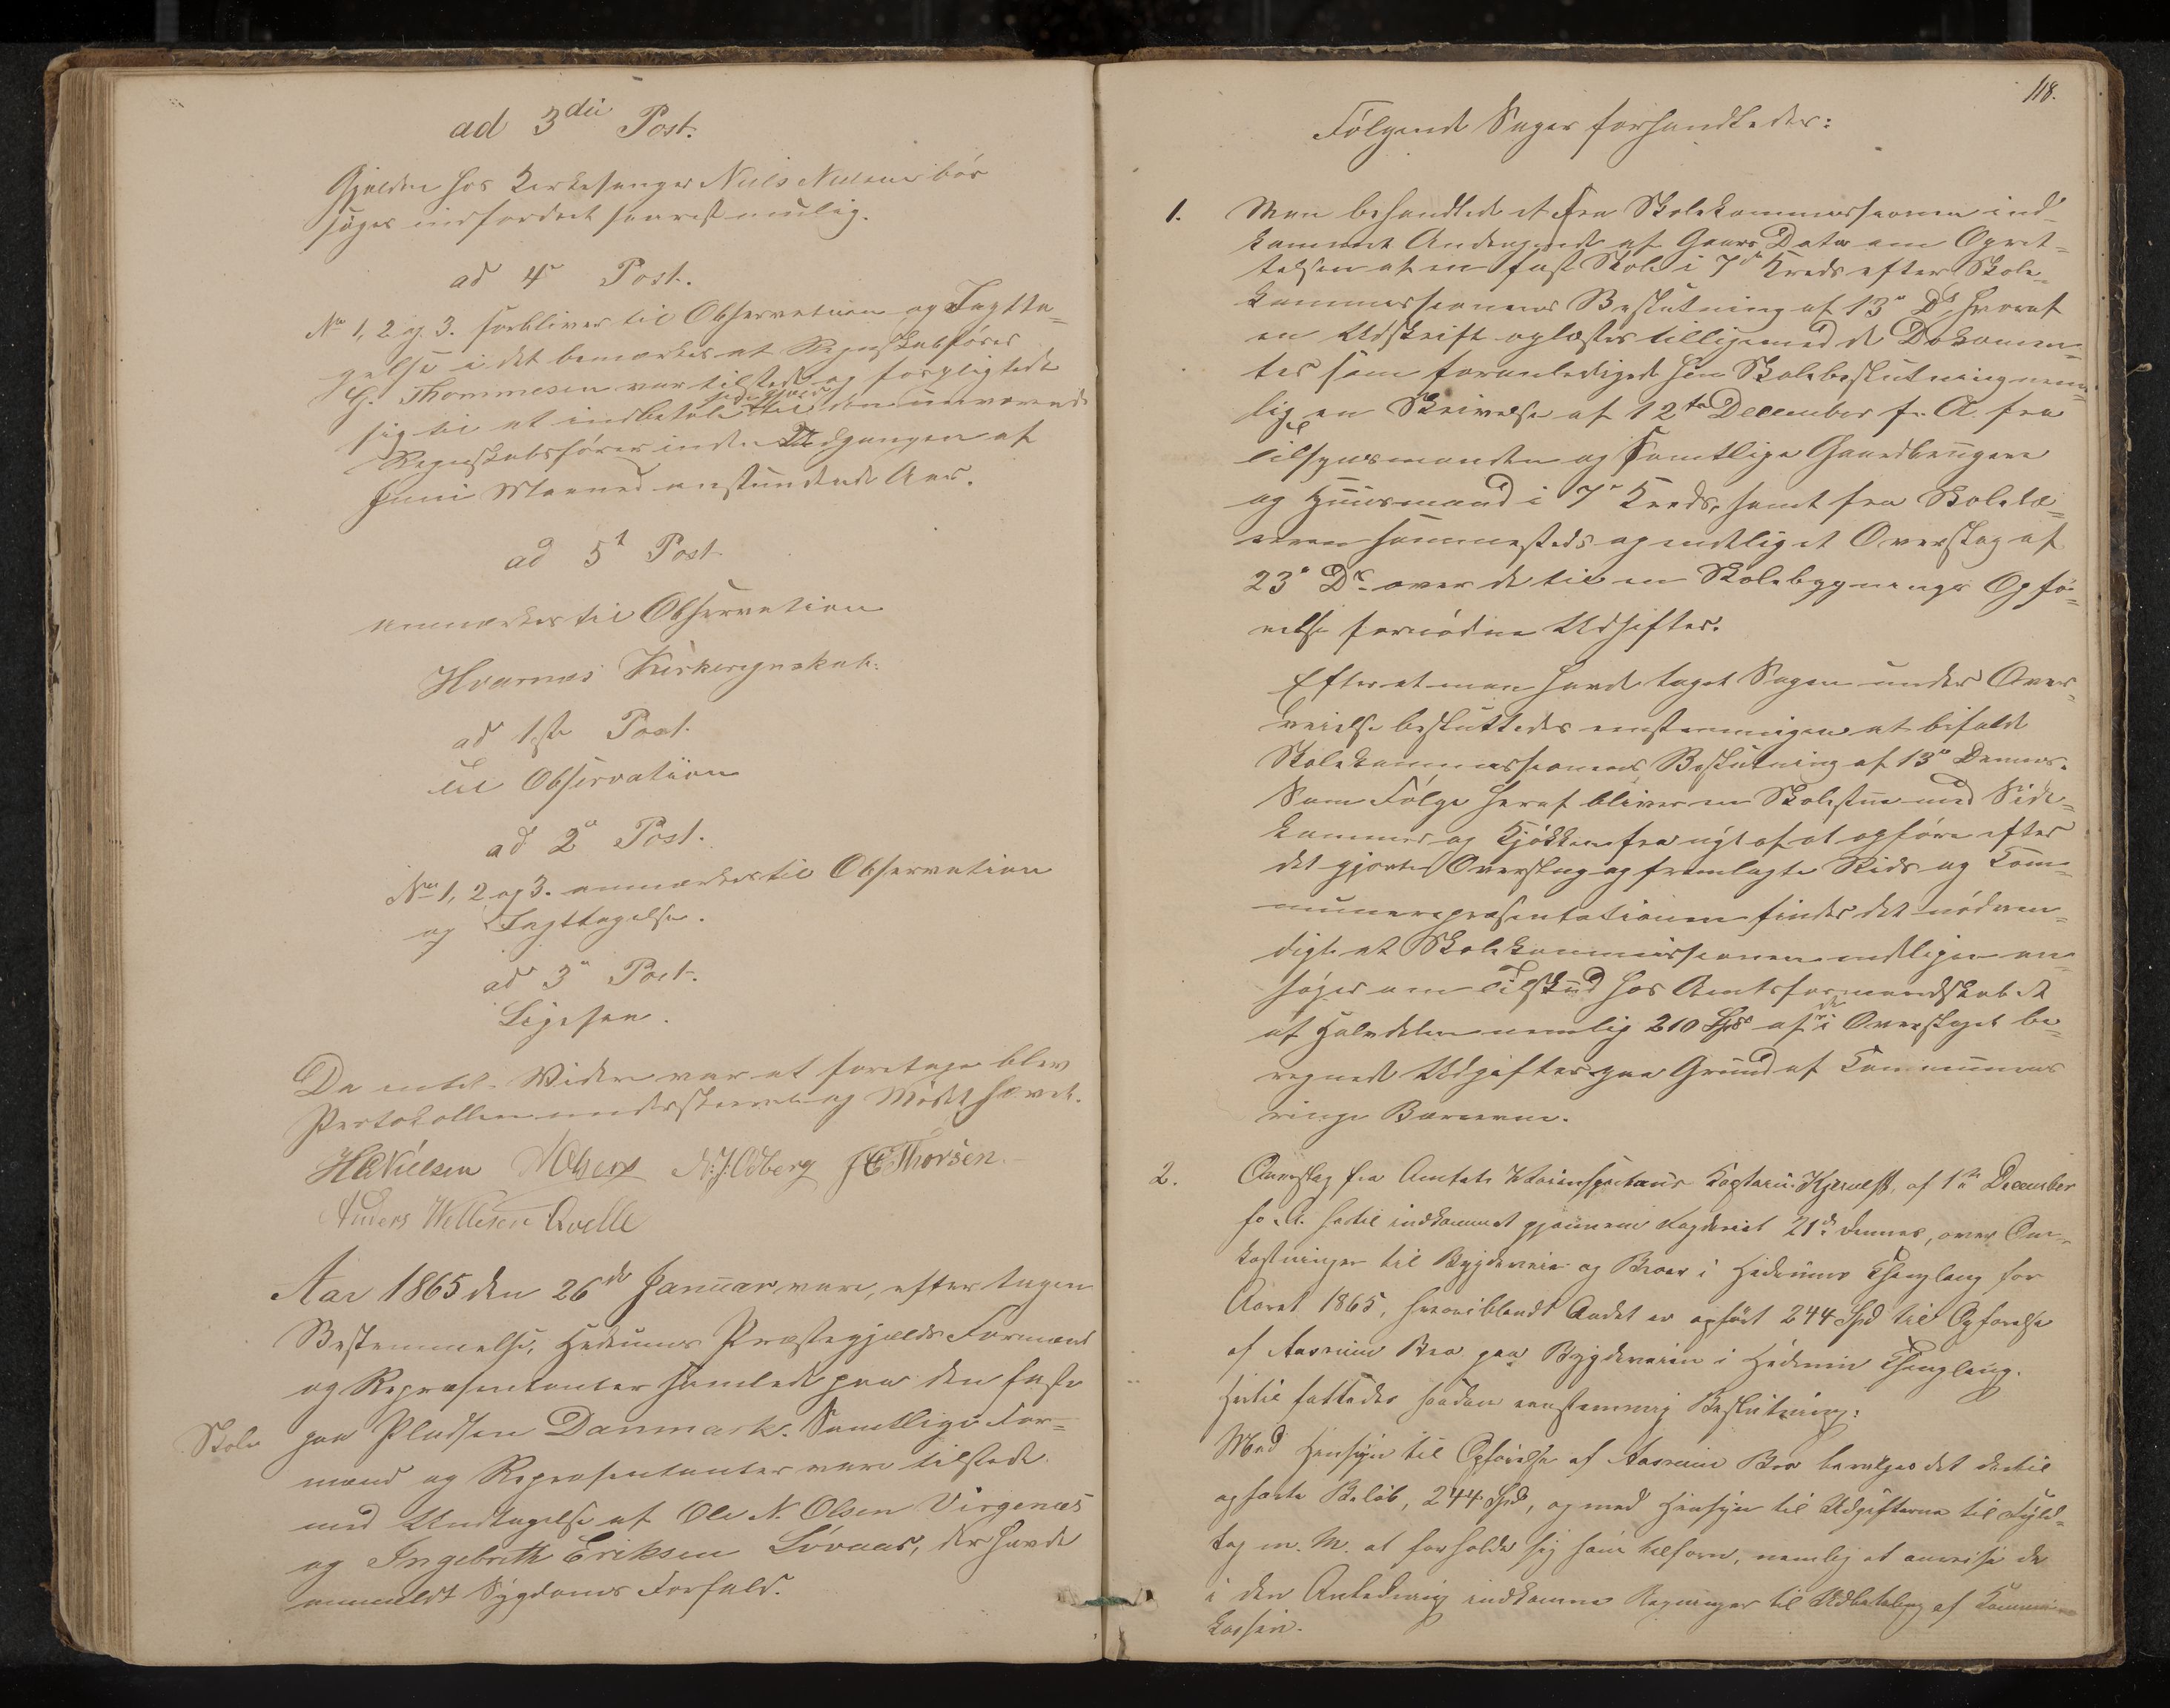 ad 3die Post.
Gjælden hos Kirkesanger Niels Nielsen bör
söges indfordret snarest muligt.
ad 4e Post.
No 1, 2 og 3. forbliver til Observation og Iagtta-
gelse i det bemærkes at Regnskabsfører
G. Thommesen var tilstede og forpligtede
sig til at indbetale til den nuværende
Regnskabsfører inden Udgangen af
Juni Maaned anstundende Aar.
ad 5t Post
anmærkes til Observation
Hvarnæs Kirkeregnskab:
ad 1ste Post.
til Observation
ad 2n Post.
No 1, 2 og 3. anmærkes til Observation
og Iagttagelse.
ad 3n Post.
Ligesaa.
Da intet Videre var at foretage blev
Protokollen underskreven og Mödet hævet.
H Nielsen N. J. Odberg Thorsen
Anders Willesen Qvelle
Aar 1865 den 26de Januar vare, efter tagen
Bestemmelse, Hedrums Præstegjælds Formænd
og Repræsentanter samlede paa den faste
Skole paa Pladsen Danmark. Samtlige For=
mænd og Repræsentanter vare tilstede
med Undtagelse af Ole N. Olsen Virgenæs
og Ingebreth Eriksen Lövaas, der havde
anmeldt Sygdoms Forfald.
118.
Fölgende Sager forhandledes:
1. Man behandlede et fra Skolekommissionen ind-
kommet Andragende af Gaars Dato om Opret=
telsen af en fast Skole i 7de Kreds efter Skole-
kommissionens Beslutning af 13e Ds, hvoraf
en Udskrift oplæstes tilligemed de Dokumen=
ter som foranledigede hin Skolebeslutning nem=
lig en Skrivelse af 12te December f. A. fra
Tilsynsmanden og samtlige Gaardbrugere
og Huusmænd i 7e Kreds, samt fra Skolelæ=
reren sammesteds og endelig et Overslag af
23e Ds over de til en Skolebygnings Opfö=
relse fornödne Udgifter.
Efter at man havde taget Sagen under Over=
veielse besluttedes enstemmigen at bifalde
Skolekommissionens Beslutning af 13e Dennes.
Som Fölge heraf bliver en Skolestue med Side=
kammer og Kjökken fra nyt af at opföre efter
det gjorte Overslag og fremlagte Rids og Kom=
munerepræsentationen finder det nödven=
digt at Skolekommissionen endligen an=
söger om Tilskud hos Amtsformandskabet
af Halvdelen nemlig 210 Spd af de i Overslaget be=
regnede Udgifter paa Grund af Kommunens
ringe Bæreevne.
2. Overslag fra Amtets Veiinspecteur Kaptain Kjerulf, af 1ste December
f. A. hertil indkommet gjennem Fogderiet 21de dennes, over Om-
kostninger til Bygdeveie og Broer i Hedrums Thinglaug for
Aaret 1865, hvoriblandt Andet er opfört 244 Spd til Opförelse
af Aasrum Bro paa Bygdeveien i Hedrum Thinglaug.
Hertil fattedes saadan eenstemmig Beslutning:
Med Hensyn til Opförelse af Aasrum Bro bevilges det dertil
opförte Belöb, 244 Spd, og med Hensyn til Udgifterne til Fyld=
tag m. M. at forholde sig som tilforn, nemlig at anvise de
i den Anledning indkomne Regninger til Udbetaling af Kommune
kassen.